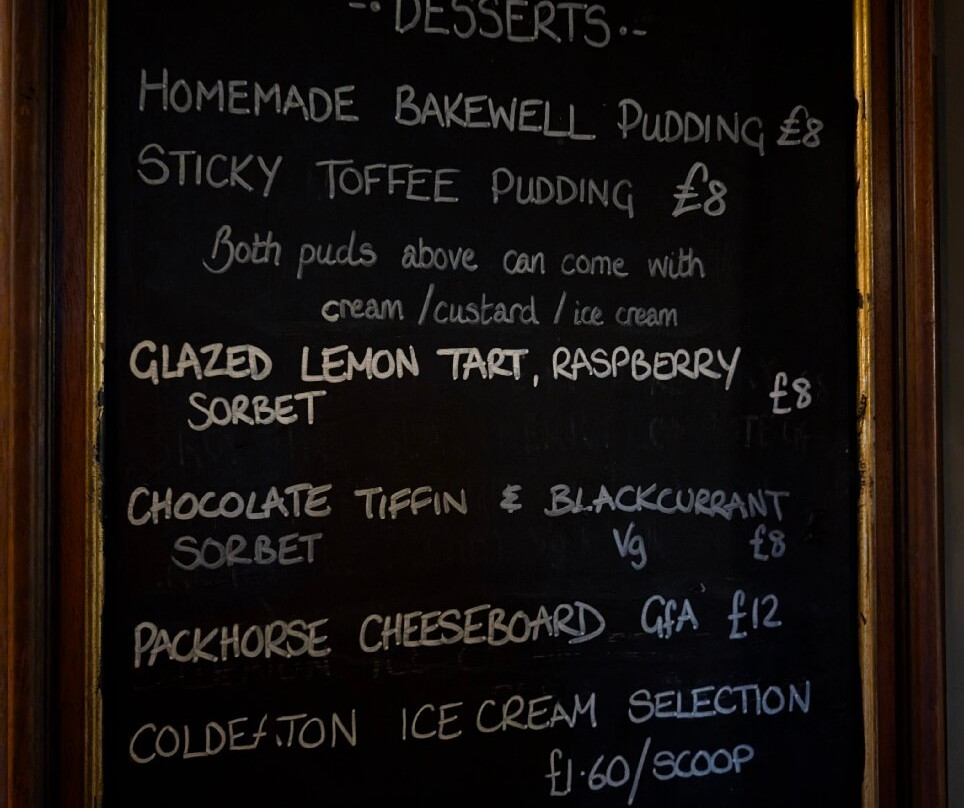 -· DESSERTS ·-
HOMEMADE BAKEWELL PUDDING £8
STICKY TOFFEE PUDDING £8
Both puds above can come with
cream / custard / ice cream
GLAZED LEMON TART, RASPBERRY
SORBET £8
CHOCOLATE TIFFIN & BLACKCURRANT
SORBET Vg £8
PACKHORSE CHEESEBOARD GfA £12
ICE CREAM SELECTION
£1.60/SCOOP